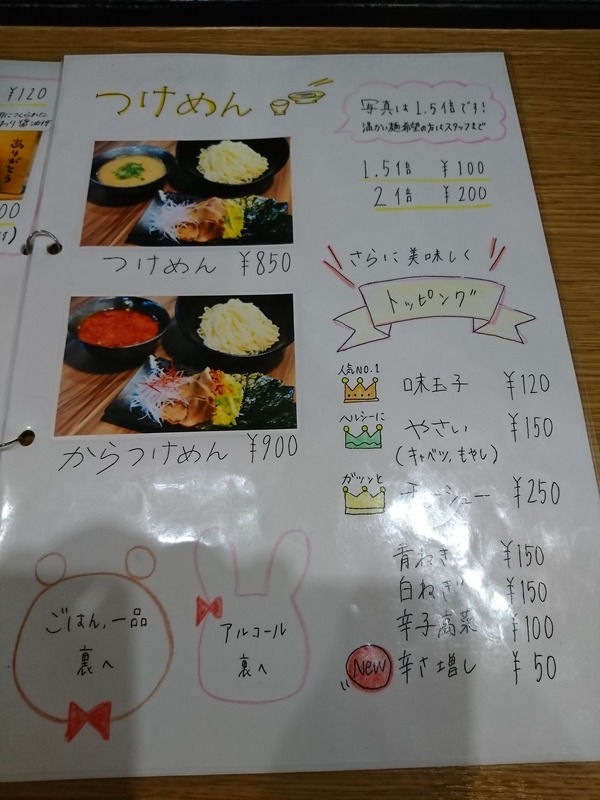 ¥120
ありがとう
つけめん
写真は1.5倍です!
温かい麺希望の方はスタッフまで
1.5倍 ¥100
2倍 ¥200
つけめん ¥850
からつけめん ¥900
さらに美味しく
トッピング
人気NO.1
味玉子 ¥120
ヘルシーに
やさい ¥150
(キャベツ,もやし)
ガツンと
チャーシュー ¥250
青ねぎ ¥150
白ねぎ ¥150
辛子高菜 ¥100
New 辛さ増し ¥50
ごはん,一品
裏へ
アルコール
裏へ